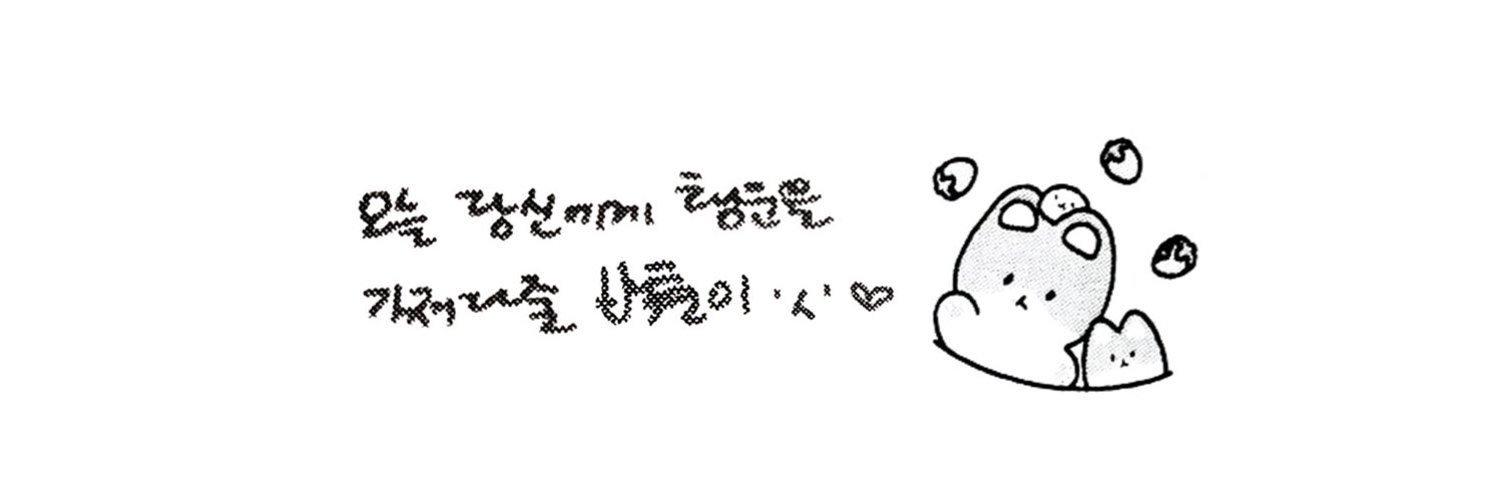 오늘 당신에게 행운을
가져다줄 바톨이 ㅅ' ♡